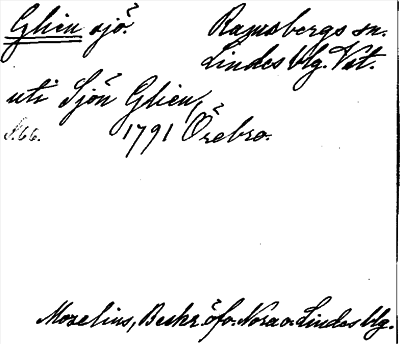 Glien sjö. Ramsbergs sn.
Lindes blg. Vstm.
uti Sjön Glien,
S.66. 1791 Örebro.
Morelius, Beskr. öfv. Nora o. Lindes blg.